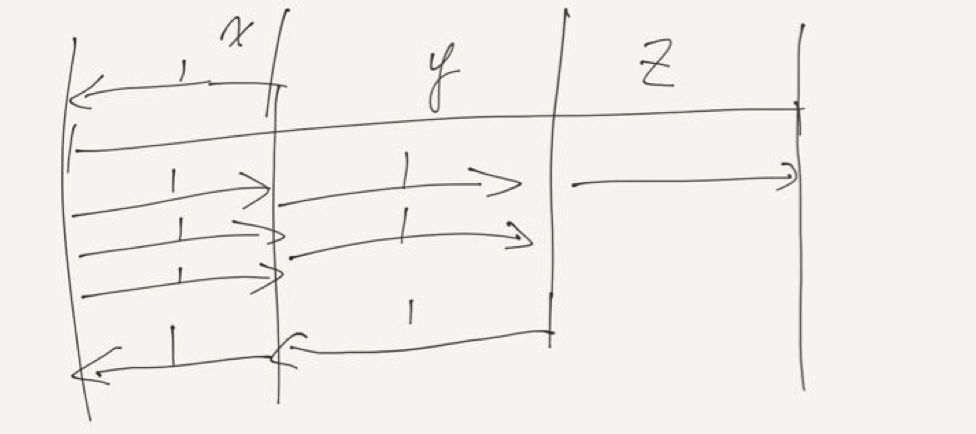 x
y
z
1
1 1
1 1
1
1
1